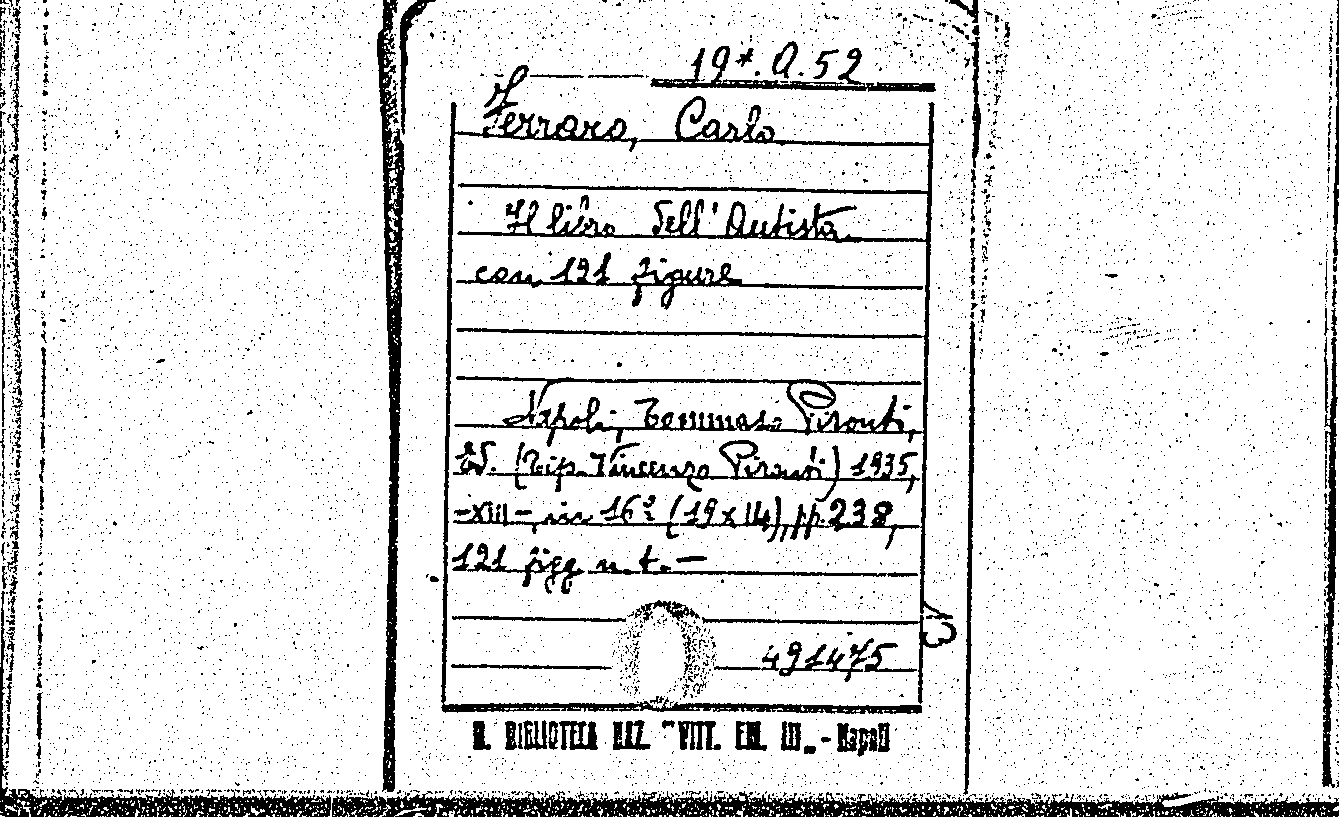 19*. Q. 52
Ferraro, Carlo
Il libro dell'Autista
con 121 figure
Napoli, Tommaso Pironti,
Ed. (Tip. Vincenzo Pironti) 1935,
-XIII-, in 16º (19x14), pp. 238,
121 figg. n. t. -
491475
R. BIBLIOTECA NAZ. "VITT. EM. III„ - Napoli